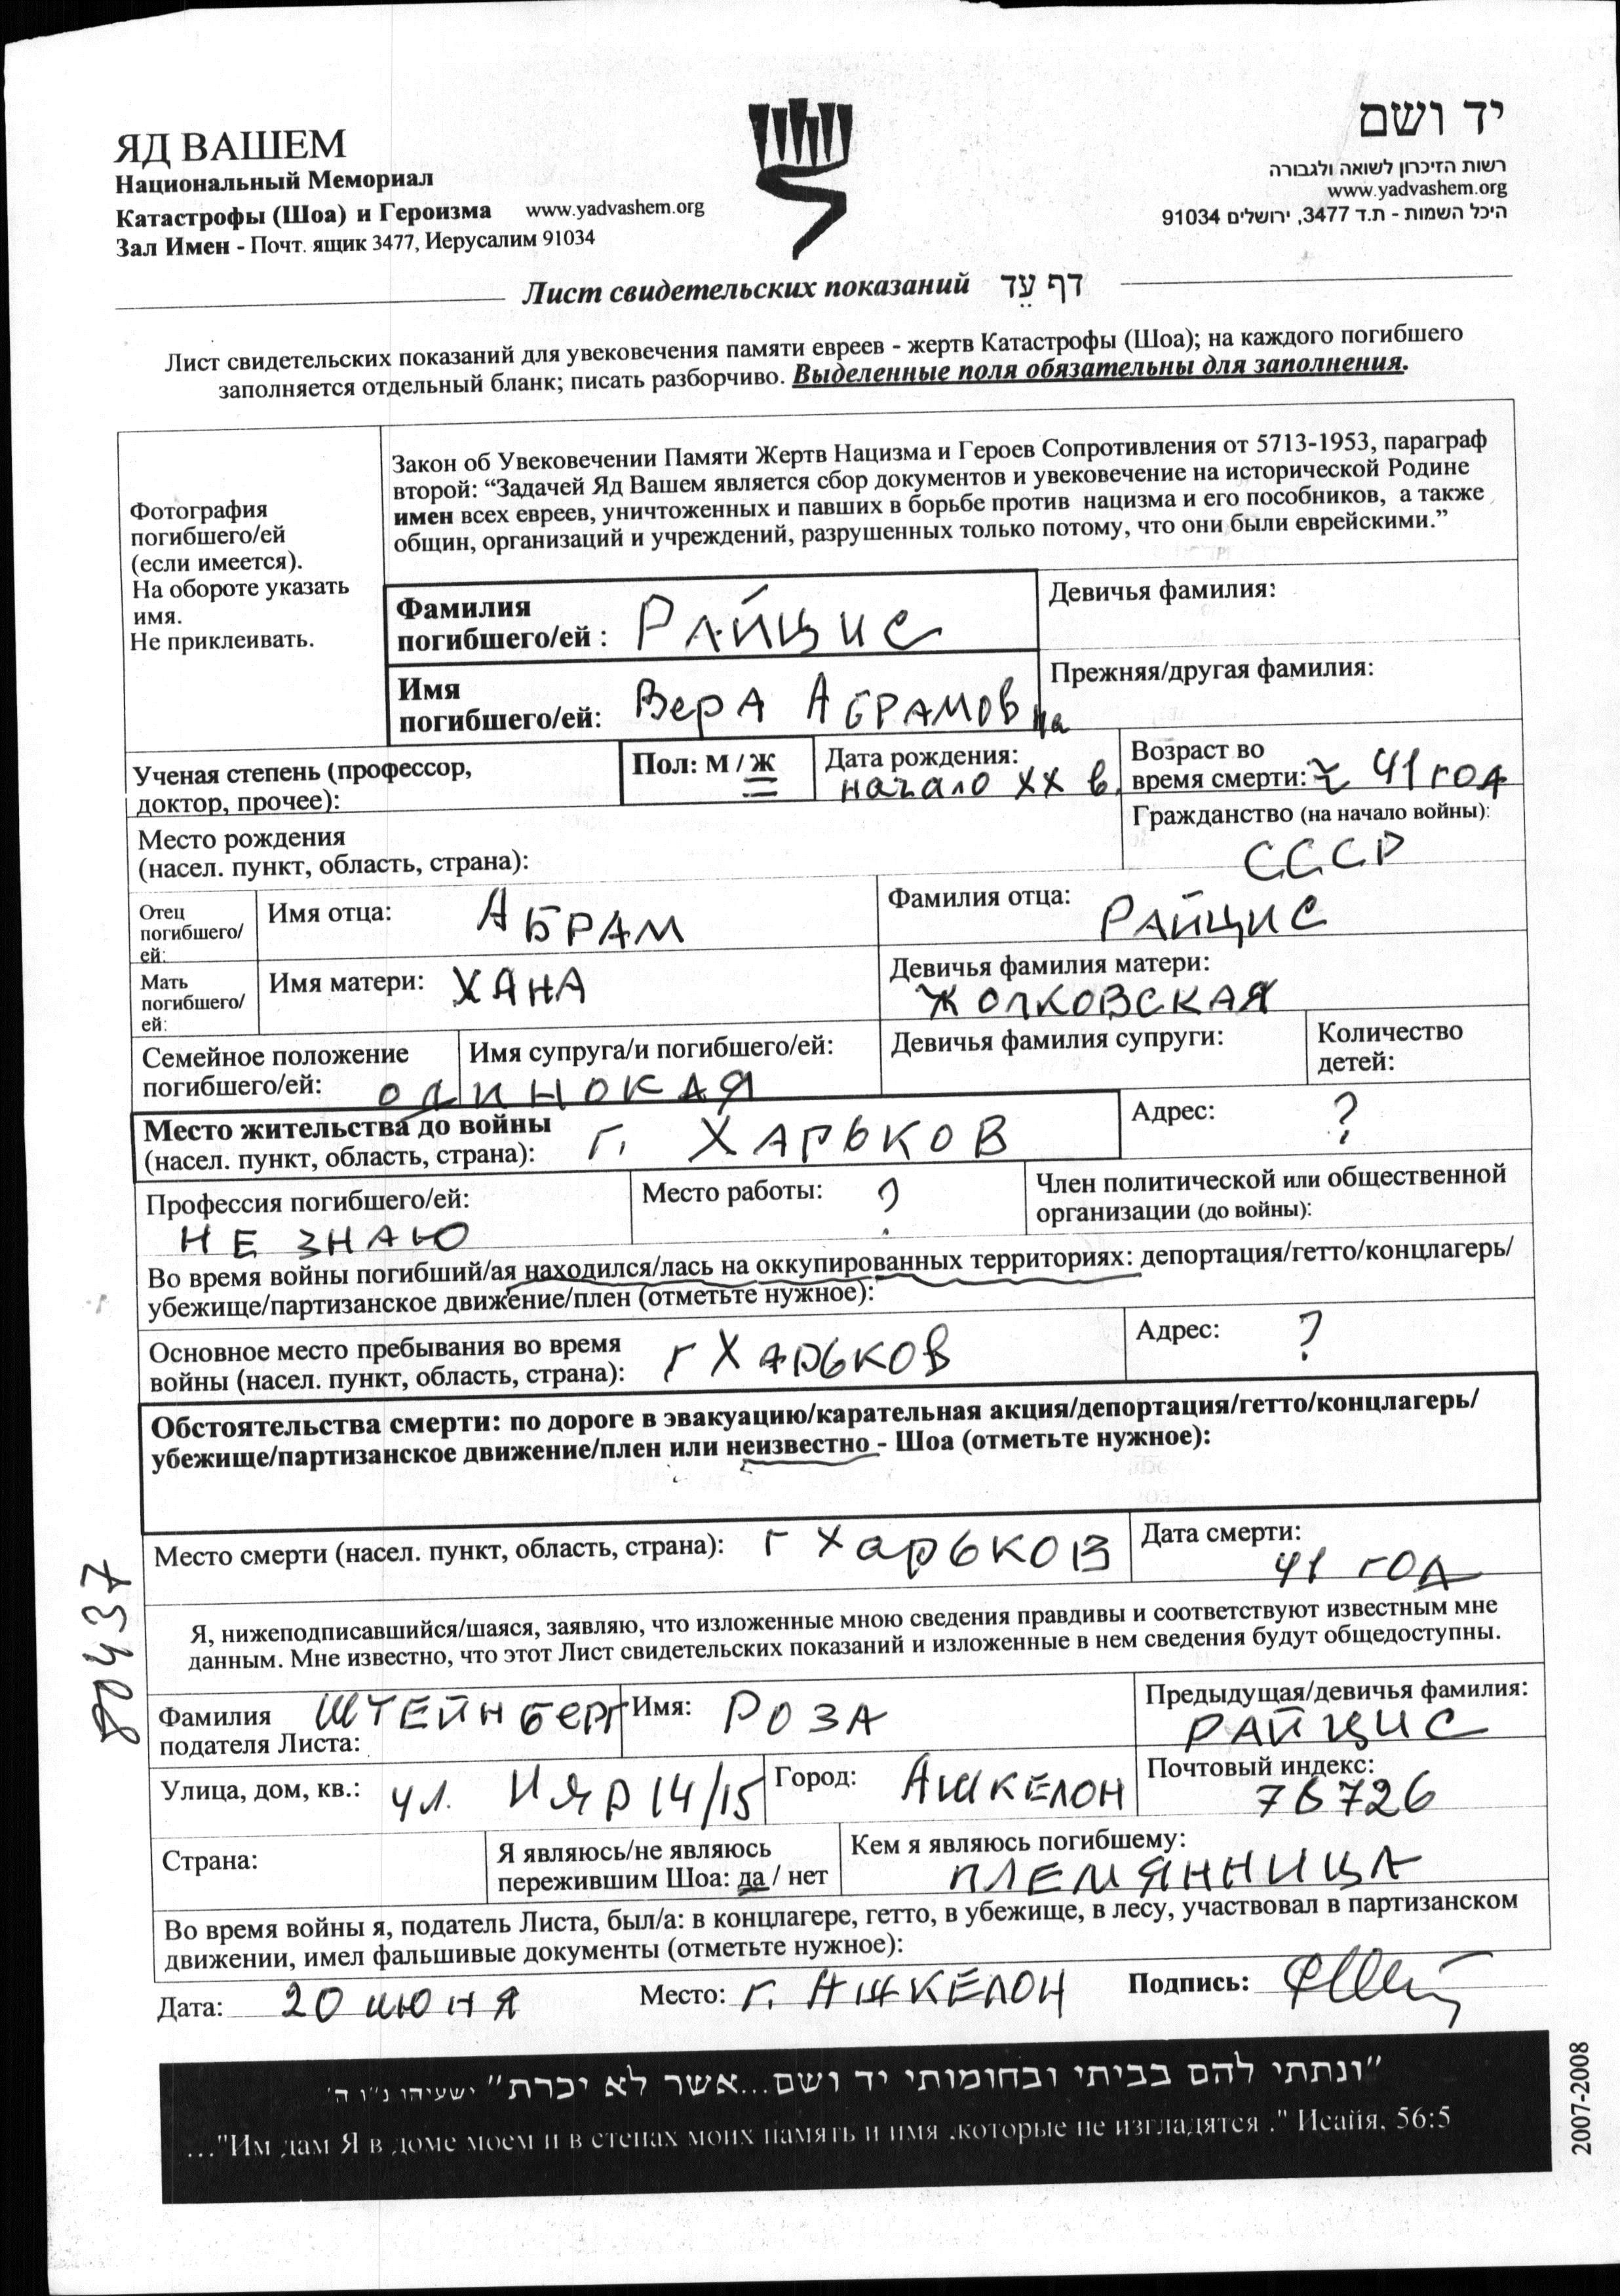 ЯД ВАШЕМ
Национальный Мемориал
Катастрофы (Шоа) и Героизма www.yadvashem.org
Зал Имен - Почт. ящик 3477, Иерусалим 91034
יד ושם
רשות הזיכרון לשואה ולגבורה
www.yadvashem.org
היכל השמות - ת.ד 3477, ירושלים 91034
Лист свидетельских показаний דף עֵד
Лист свидетельских показаний для увековечения памяти евреев - жертв Катастрофы (Шоа); на каждого погибшего
заполняется отдельный бланк; писать разборчиво. Выделенные поля обязательны для заполнения.
Фотография
погибшего/ей
(если имеется).
На обороте указать
имя.
Не приклеивать.
Закон об Увековечении Памяти Жертв Нацизма и Героев Сопротивления от 5713-1953, параграф
второй: “Задачей Яд Вашем является сбор документов и увековечение на исторической Родине
имен всех евреев, уничтоженных и павших в борьбе против нацизма и его пособников, а также
общин, организаций и учреждений, разрушенных только потому, что они были еврейскими.”
Фамилия
погибшего/ей : Райцис
Девичья фамилия:
Имя
погибшего/ей: Вера Абрамовна
Прежняя/другая фамилия:
Ученая степень (профессор,
доктор, прочее):
Пол: М / Ж
Дата рождения:
начало XX в.
Возраст во
время смерти: ≈ 41 год
Место рождения
(насел. пункт, область, страна):
Гражданство (на начало войны):
СССР
Отец
погибшего/
ей:
Имя отца: АБРАМ
Фамилия отца: РАЙЦИС
Мать
погибшего/
ей:
Имя матери: ХАНА
Девичья фамилия матери:
ЖОЛКОВСКАЯ
Семейное положение
погибшего/ей: одинокая
Имя супруга/и погибшего/ей:
Девичья фамилия супруги:
Количество
детей:
Место жительства до войны
(насел. пункт, область, страна): г. ХАРЬКОВ
Адрес: ?
Профессия погибшего/ей:
НЕ ЗНАЮ
Место работы: ?
Член политической или общественной
организации (до войны):
Во время войны погибший/ая находился/лась на оккупированных территориях: депортация/гетто/концлагерь/
убежище/партизанское движение/плен (отметьте нужное):
Основное место пребывания во время
войны (насел. пункт, область, страна): г Харьков
Адрес: ?
Обстоятельства смерти: по дороге в эвакуацию/карательная акция/депортация/гетто/концлагерь/
убежище/партизанское движение/плен или неизвестно - Шоа (отметьте нужное):
Место смерти (насел. пункт, область, страна): г Харьков
Дата смерти:
41 год
80437
Я, нижеподписавшийся/шаяся, заявляю, что изложенные мною сведения правдивы и соответствуют известным мне
данным. Мне известно, что этот Лист свидетельских показаний и изложенные в нем сведения будут общедоступны.
Фамилия
подателя Листа: ШТЕЙНБЕРГ
Имя: РОЗА
Предыдущая/девичья фамилия:
РАЙЦИС
Улица, дом, кв.: ул. Ияр 14/15
Город: АШКЕЛОН
Почтовый индекс:
78726
Страна:
Я являюсь/не являюсь
пережившим Шоа: да / нет
Кем я являюсь погибшему:
ПЛЕМЯННИЦА
Во время войны я, податель Листа, был/а: в концлагере, гетто, в убежище, в лесу, участвовал в партизанском
движении, имел фальшивые документы (отметьте нужное):
Дата: 20 июня Место: г. АШКЕЛОН Подпись:
"ונתתי להם בביתי ובחומותי יד ושם...אשר לא יכרת" ישעיהו נ"ו ה'
..."Им дам Я в доме моем и в стенах моих память и имя ,которые не изгладятся ." Исайя, 56:5
2007-2008